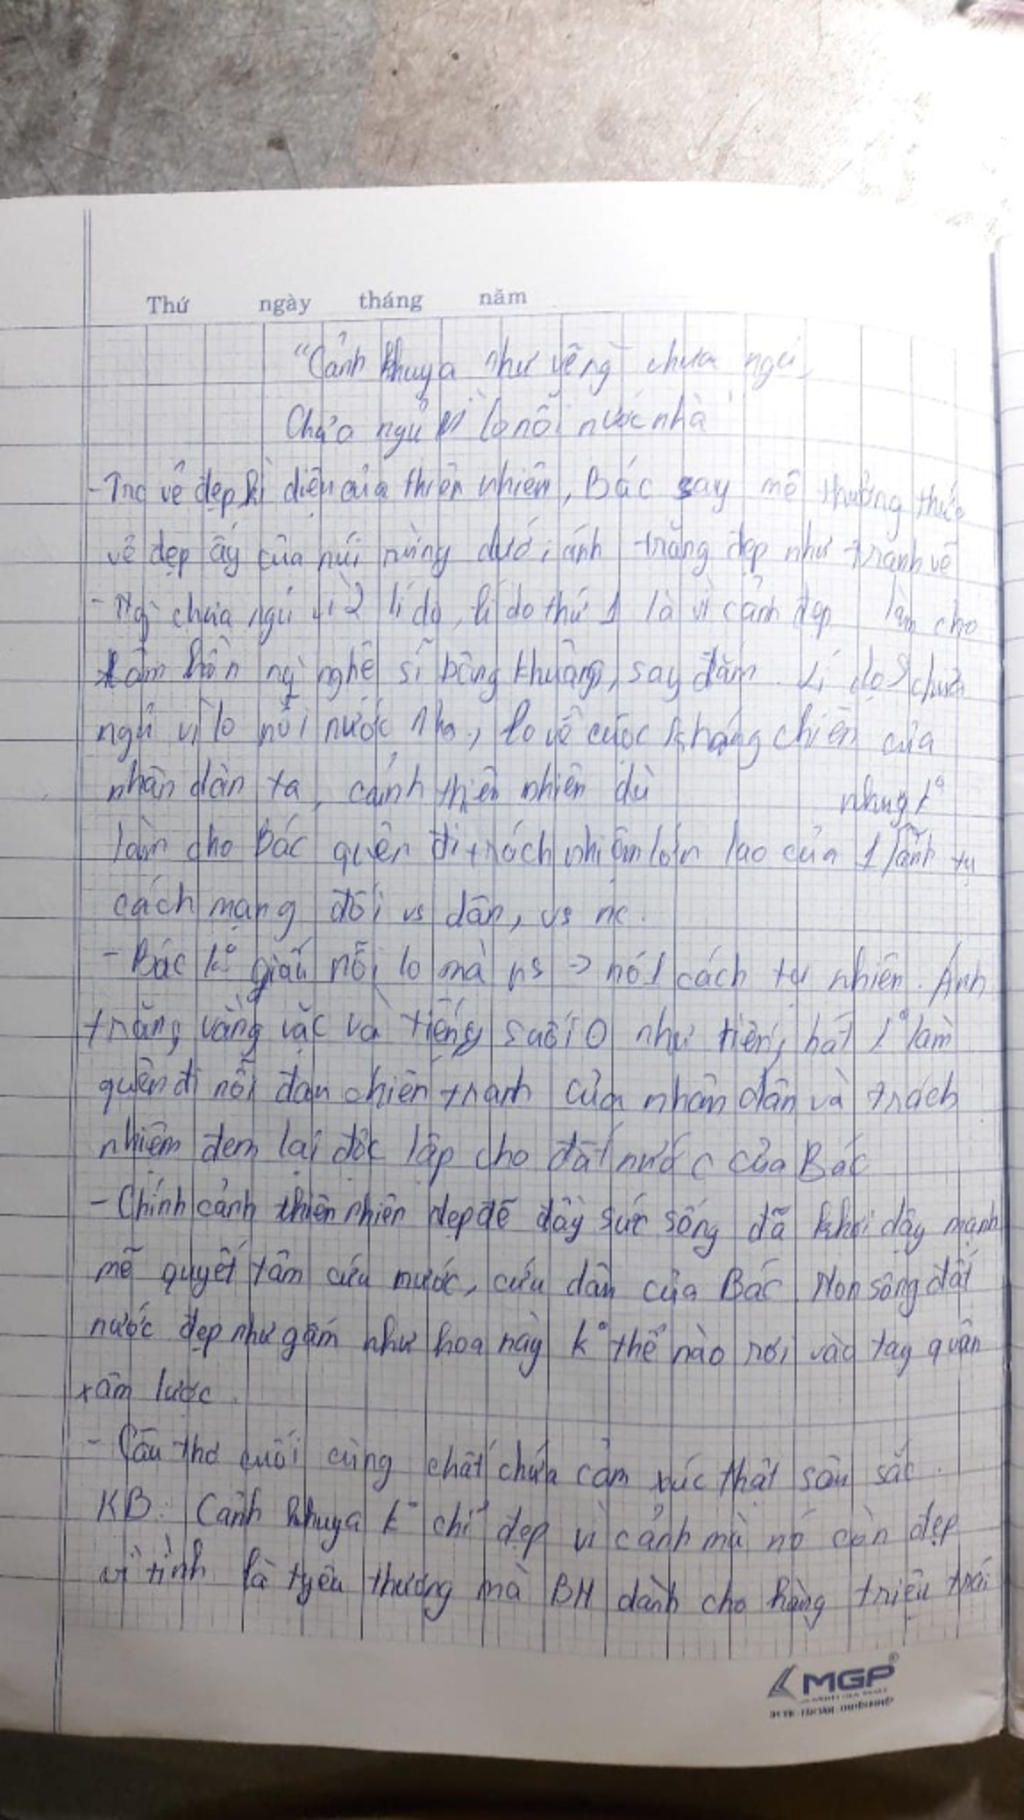 Thứ ngày tháng năm
"Cảnh khuya như vẽ ng` chưa ngủ,
Chưa ngủ vì lo nỗi nước nhà"
- Trc vẻ đẹp kì diệu của thiên nhiên, Bác say mê thưởng thức
vẻ đẹp ấy của núi rừng dưới ánh trăng đẹp như tranh vẽ
- Ng` chưa ngủ vì 2 lí do, lí do thứ 1 là vì cảnh đẹp làm cho
tâm hồn ng` nghệ sĩ bâng khuâng, say đắm. Lí do 2 chưa
ngủ vì lo nỗi nước nhà, lo về cuộc kháng chiến của
nhân dân ta, cảnh thiên nhiên dù nhưng k°
làm cho Bác quên đi trách nhiệm lớn lao của 1 lãnh tụ
cách mạng đối vs dân, vs nc.
- Bác k° giấu nỗi lo mà ns -> nó 1 cách tự nhiên. Ánh
trăng vằng vặc và tiếng suối như tiếng hát k° làm
quên đi nỗi đau chiến tranh của nhân dân và trách
nhiệm đem lại độc lập cho đất nước của Bác
- Chính cảnh thiên nhiên đẹp đẽ đầy sức sống đã khơi dậy mạnh
mẽ quyết tâm cứu nước, cứu dân của Bác. Non sông đất
nước đẹp như gấm như hoa này k° thể nào rơi vào tay quân
xâm lược.
- Câu thơ cuối cùng chất chứa cảm xúc thật sâu sắc.
KB: Cảnh khuya k° chỉ đẹp vì cảnh mà nó còn đẹp
vì tình là tyêu thương mà BH dành cho hàng triệu trái
MGP